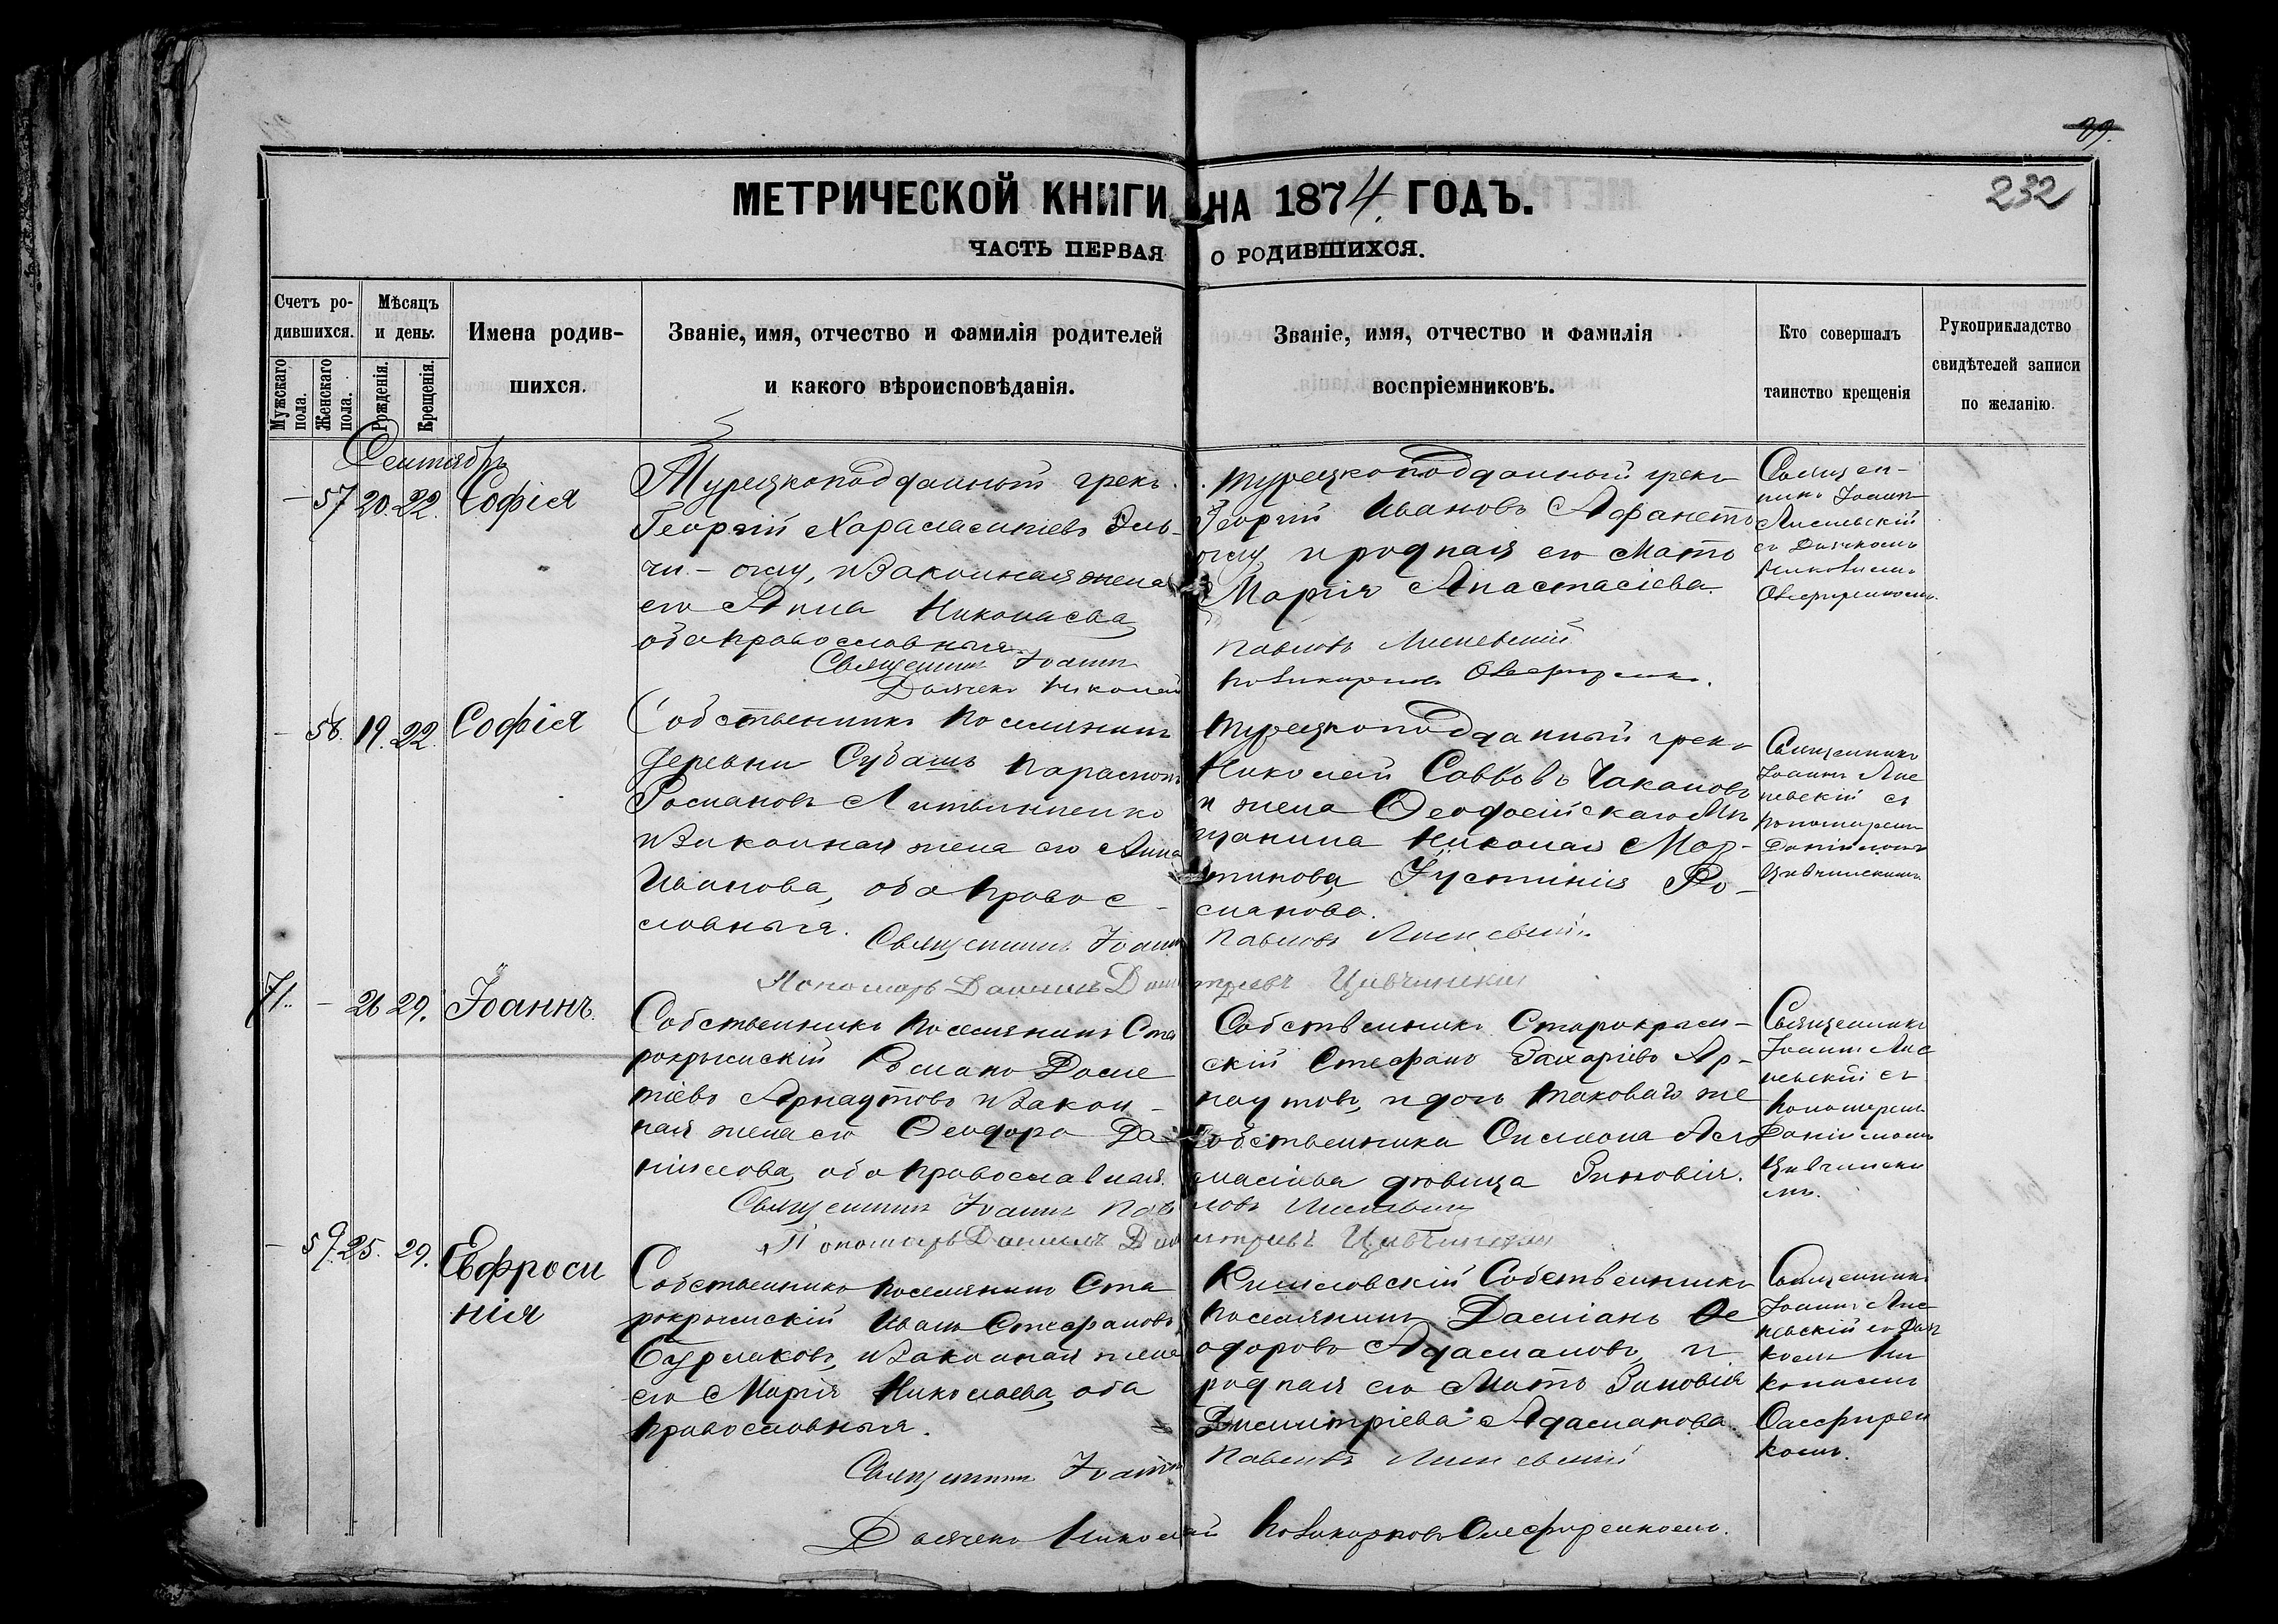 99.
232
МЕТРИЧЕСКОЙ КНИГИ НА 1874. ГОДЪ.
ЧАСТЬ ПЕРВАЯ О РОДИВШИХСЯ.
Счетъ ро-
дившихся.
Мужскаго пола.
Женскаго пола.
Мѣсяцъ
и день.
Рожденія.
Крещенія.
Имена родив-
шихся.
Званіе, имя, отчество и фамилія родителей
и какого вѣроисповѣданія.
Званіе, имя, отчество и фамилія
воспріемниковъ.
Кто совершалъ
таинство крещенія
Рукоприкладство
свидѣтелей записи
по желанію.
Сентябрь
— 57 20. 22. Софія
Турецкоподданный грекъ
Георгій Харалампіевъ Эль-
чи-оглу, и законная жена
его Анна Николаева
оба православныя.
Священникъ Іоаннъ
Дьячекъ Николай
Турецкоподданный грекъ
Георгій Ивановъ
оглу, и родная его Мать
Марія Анастасіева.
Павловъ
Олефиренко.
Священ-
никъ Іоаннъ
съ Дьячкомъ
Николаемъ
Олефиренкомъ.
— 58. 19. 22. Софія
Собственникъ поселянинъ
деревни Субашъ
Романовъ Литвиненко
и законная жена его Анна
Иванова, оба правос-
лавныя.
Священникъ Іоаннъ
Пономарь Даніилъ
Турецкоподданный грекъ
Николай Саввовъ Чакаловъ
и жена Ѳеодосійскаго Мѣ
щанина Николая Мар-
тинова, Іустинія Ро-
манова.
Павловъ
Цивчинскій
Священникъ
Іоаннъ Лис
невскій съ
пономаремъ
Даніиломъ
Цивчинскимъ
71. — 26 29. Іоаннъ.
Собственникъ поселянинъ Ста
рокрымскій Романъ Доме
тіевъ Арнаутовъ и закон-
ная жена его Ѳеодора Да-
ніилова, оба православныя.
Священникъ Іоаннъ Павловъ
Пономарь Даніилъ Димитріевъ Цивчинскій
Собственникъ Старокрым-
скій Стефанъ Захаріевъ Ар-
наутовъ, и дочь таковаго же
собственника Симеона
девица Зиновія.
Священникъ
Іоаннъ Лис
невскій съ
пономаремъ
Даніиломъ
Цивчински
мъ.
— 59. 25. 29. Евфроси
нія
Собственникъ поселянинъ Ста
рокрымскій Иванъ Стефановъ
Бурлаковъ, и законная жена
его Марія Николаева, оба
православныя.
Священникъ Іоаннъ
Дьячекъ Николай
Кишловскій Собственникъ
поселянинъ Даміанъ Ѳе
одоровъ Адамановъ, и
родная его Мать Зиновія
Димитріева Адаманова.
Павловъ
Олефиренкомъ.
Священникъ
Іоаннъ Лис
невскій съ Дьяч
комъ Ни
колаемъ
Олефирен
комъ.